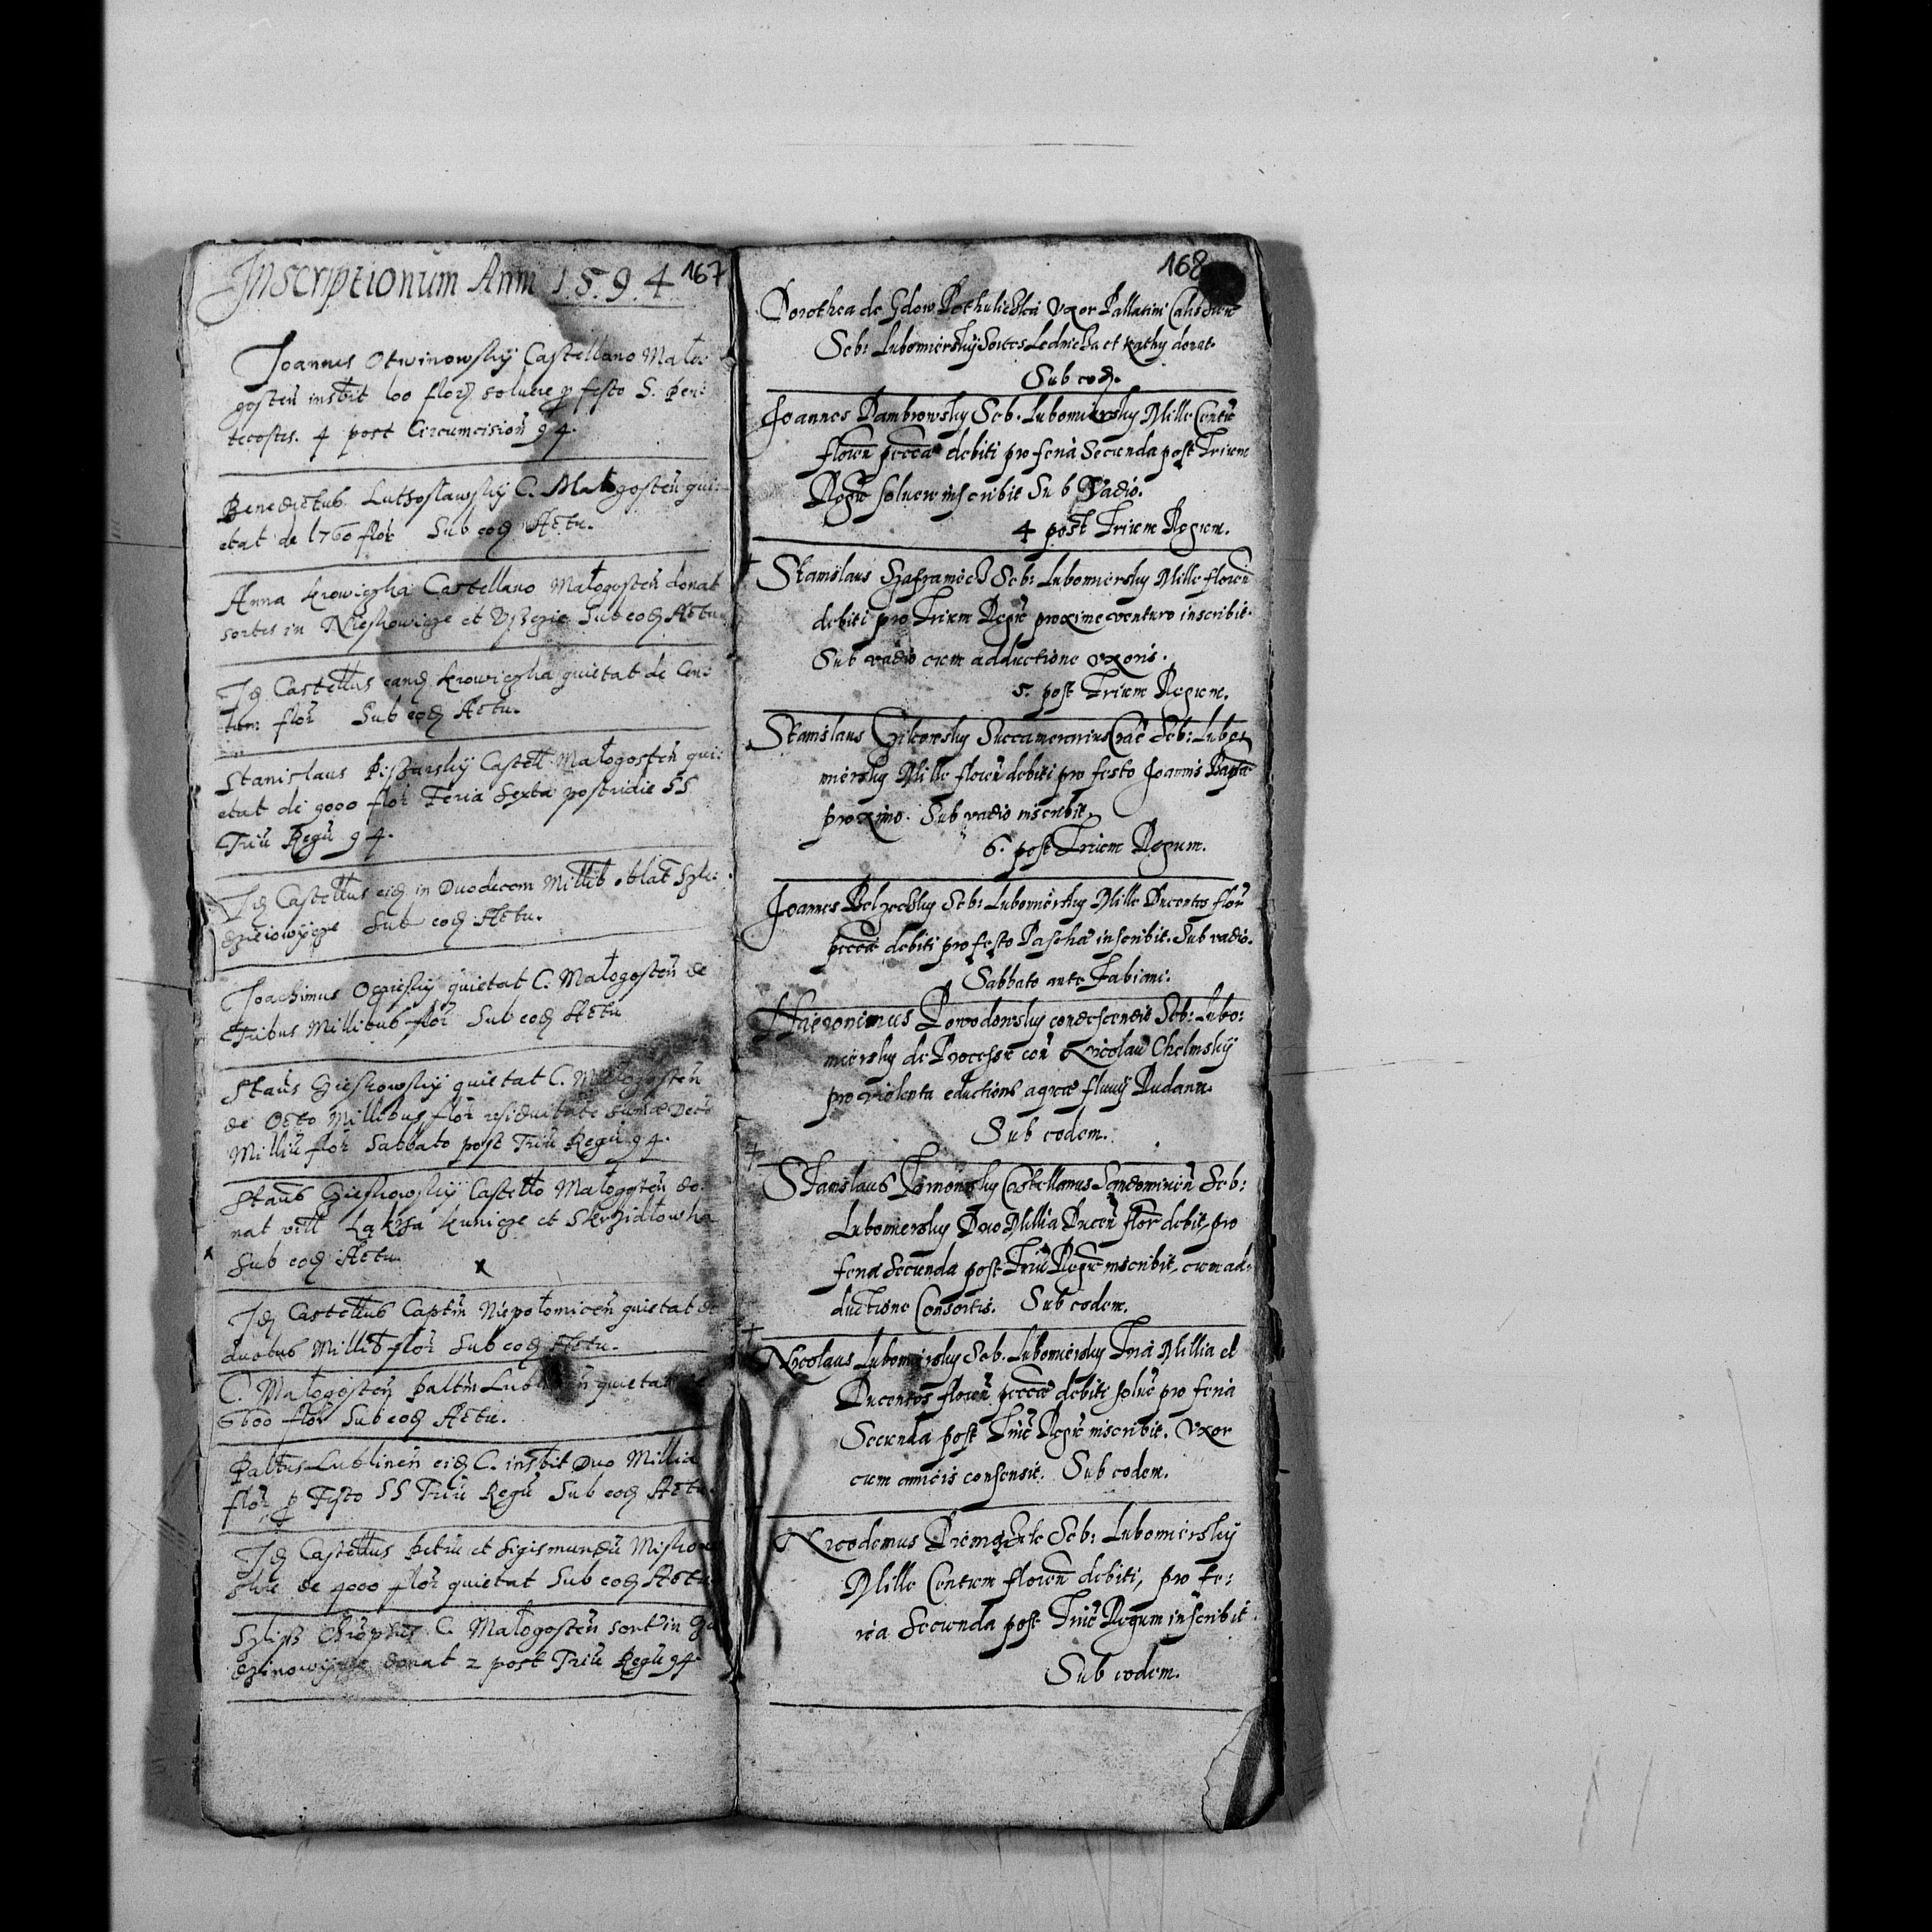 Inscriptionum Anni 1594 167
Joannes Otwinowskÿ Castellano Mało:
gosteñ insbit 100 floꝝ soluere p festo S. Pen:
tecostes. 4 post Circumcisioñ 94.
Benedictus Lutosławskÿ C. Małogosteñ qui:
etat de 1760 flor Sub eoꝺ Actu.
Anna Krowiczka Castellano Małogosteñ donat
sortes in Sub eoꝺ Actu
Iꝺ Castellus eanꝺ Krowiczka quietat de Cen:
tum flor Sub eoꝺ Actu.
Stanislaus Castell Małogosteñ qui:
etat de 9000 flor Feria Sexta postridie SS
Triũ Regũ 94.
Iꝺ Castellus eiꝺ in Duodecem Millib oblat
Sub eoꝺ Actu.
Joachimus Ocieskÿ quietat C. Małogosteñ de
Tribus Millibus flor Sub eoꝺ Actu
Staũs quietat C. Małogosteñ
de Octo Millibus flor residuitate sumæ Dece
Milliũ flor Sabbato post Triũ Regũ 94.
Staũs Castello Małogosteñ do:
nat vill Łąkta Kunicze et Skrzidlowka
Sub eoꝺ Actu
x x
Iꝺ Castellus Captm Niepołomiceñ quietat de
duobus Millib flor Sub eoꝺ Actu.
C. Małogosteñ Paltm quietat
6600 flor Sub eoꝺ Actu.
Paltus Lublineñ eiꝺ C. insbit Duo Millia
flor p Festo SS Triũ Regũ Sub eoꝺ Actu.
Iꝺ Castellus Petrũ et Sigismundũ
de 4000 flor quietat Sub eoꝺ Actu
C. Małogosteñ sort in
donat 2 post Triũ Regũ 94
168
Dorothea de Gdow Vxor Pallatini
Seb: Lubomierskÿ Sortes Lednicza et Kathy donat.
Sub eoꝺ.
Joannes Dambrowsky Seb. Lubomiersky Mille Centũ
floreñ pecca debiti pro feria Secunda post Trium
Regũ soluere inscribit Sub Vadio.
4 post Trium Regum.
Stanislaus Szafraniec Seb: Lubomiersky Mille floreñ
debiti pro Trium Regũ proxime venturo inscribit.
Sub vadio cum adductione vxoris.
5. post Trium Regum.
Stanislaus Succamerarius Crac Seb: Lubo
miersky Mille floreñ debiti pro festo Joannis Bap
proximo. Sub vadio inscribit.
6. post Trium Regum.
Joannes Belzecky Seb: Lubomiersky Mille Ducentos flor
pecca debiti pro festo Paschæ inscribit. Sub vadio.
Sabbato ante Fabiani.
Hieronimus Powodowsky condescendit Seb: Lubo:
miersky de Processu coñ Nicolaũ Chelmskÿ
pro violenta eductione aquæ fluuÿ Rudaua.
Sub eodem.
Stanislaus Castellanus Sendomirieñ Seb:
Lubomiersky Duo Millia Duceñ flor debit, pro
feria Secunda post Triũ Regũ inscribit, cum ad:
ductione Consortis. Sub eodem.
Nicolaus Lubomirsky Seb. Lubomiersky Tria Millia et
Ducentos floreñ pecca debite solue pro feria
Secunda post Triũ Regũ inscribit. Vxor
cum amicis consensit. Sub eodem.
Nicodemus Seb: Lubomierskÿ
Mille Centum floreñ debiti, pro fe:
ria Secunda post Triũ Regum inscribit
Sub eodem.